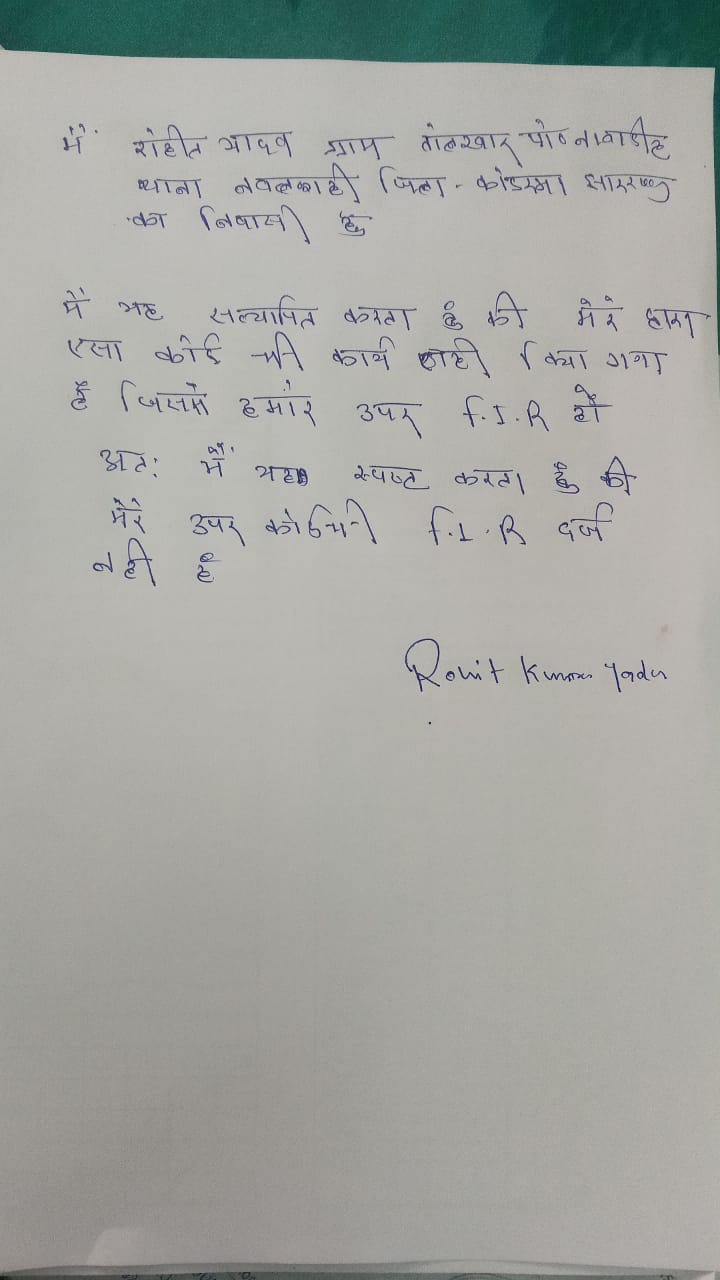 में रोहीत यादव ग्राम तोलखार पो० नावाडीह
थाना नवलशाही जिला - कोडरमा झारखण्ड
का निवासी हुँ
में यह सत्यापित करता हुँ की मेरे द्वारा
एसा कोई भी कार्य नही किया गया
हैं जिसमे हमारे उपर F.I.R हो
अत: मैं यह स्पष्ट करता हुँ की
मेरे उपर कोई भी F.I.R दर्ज
नही हैं
Rohit Kumar Yadav